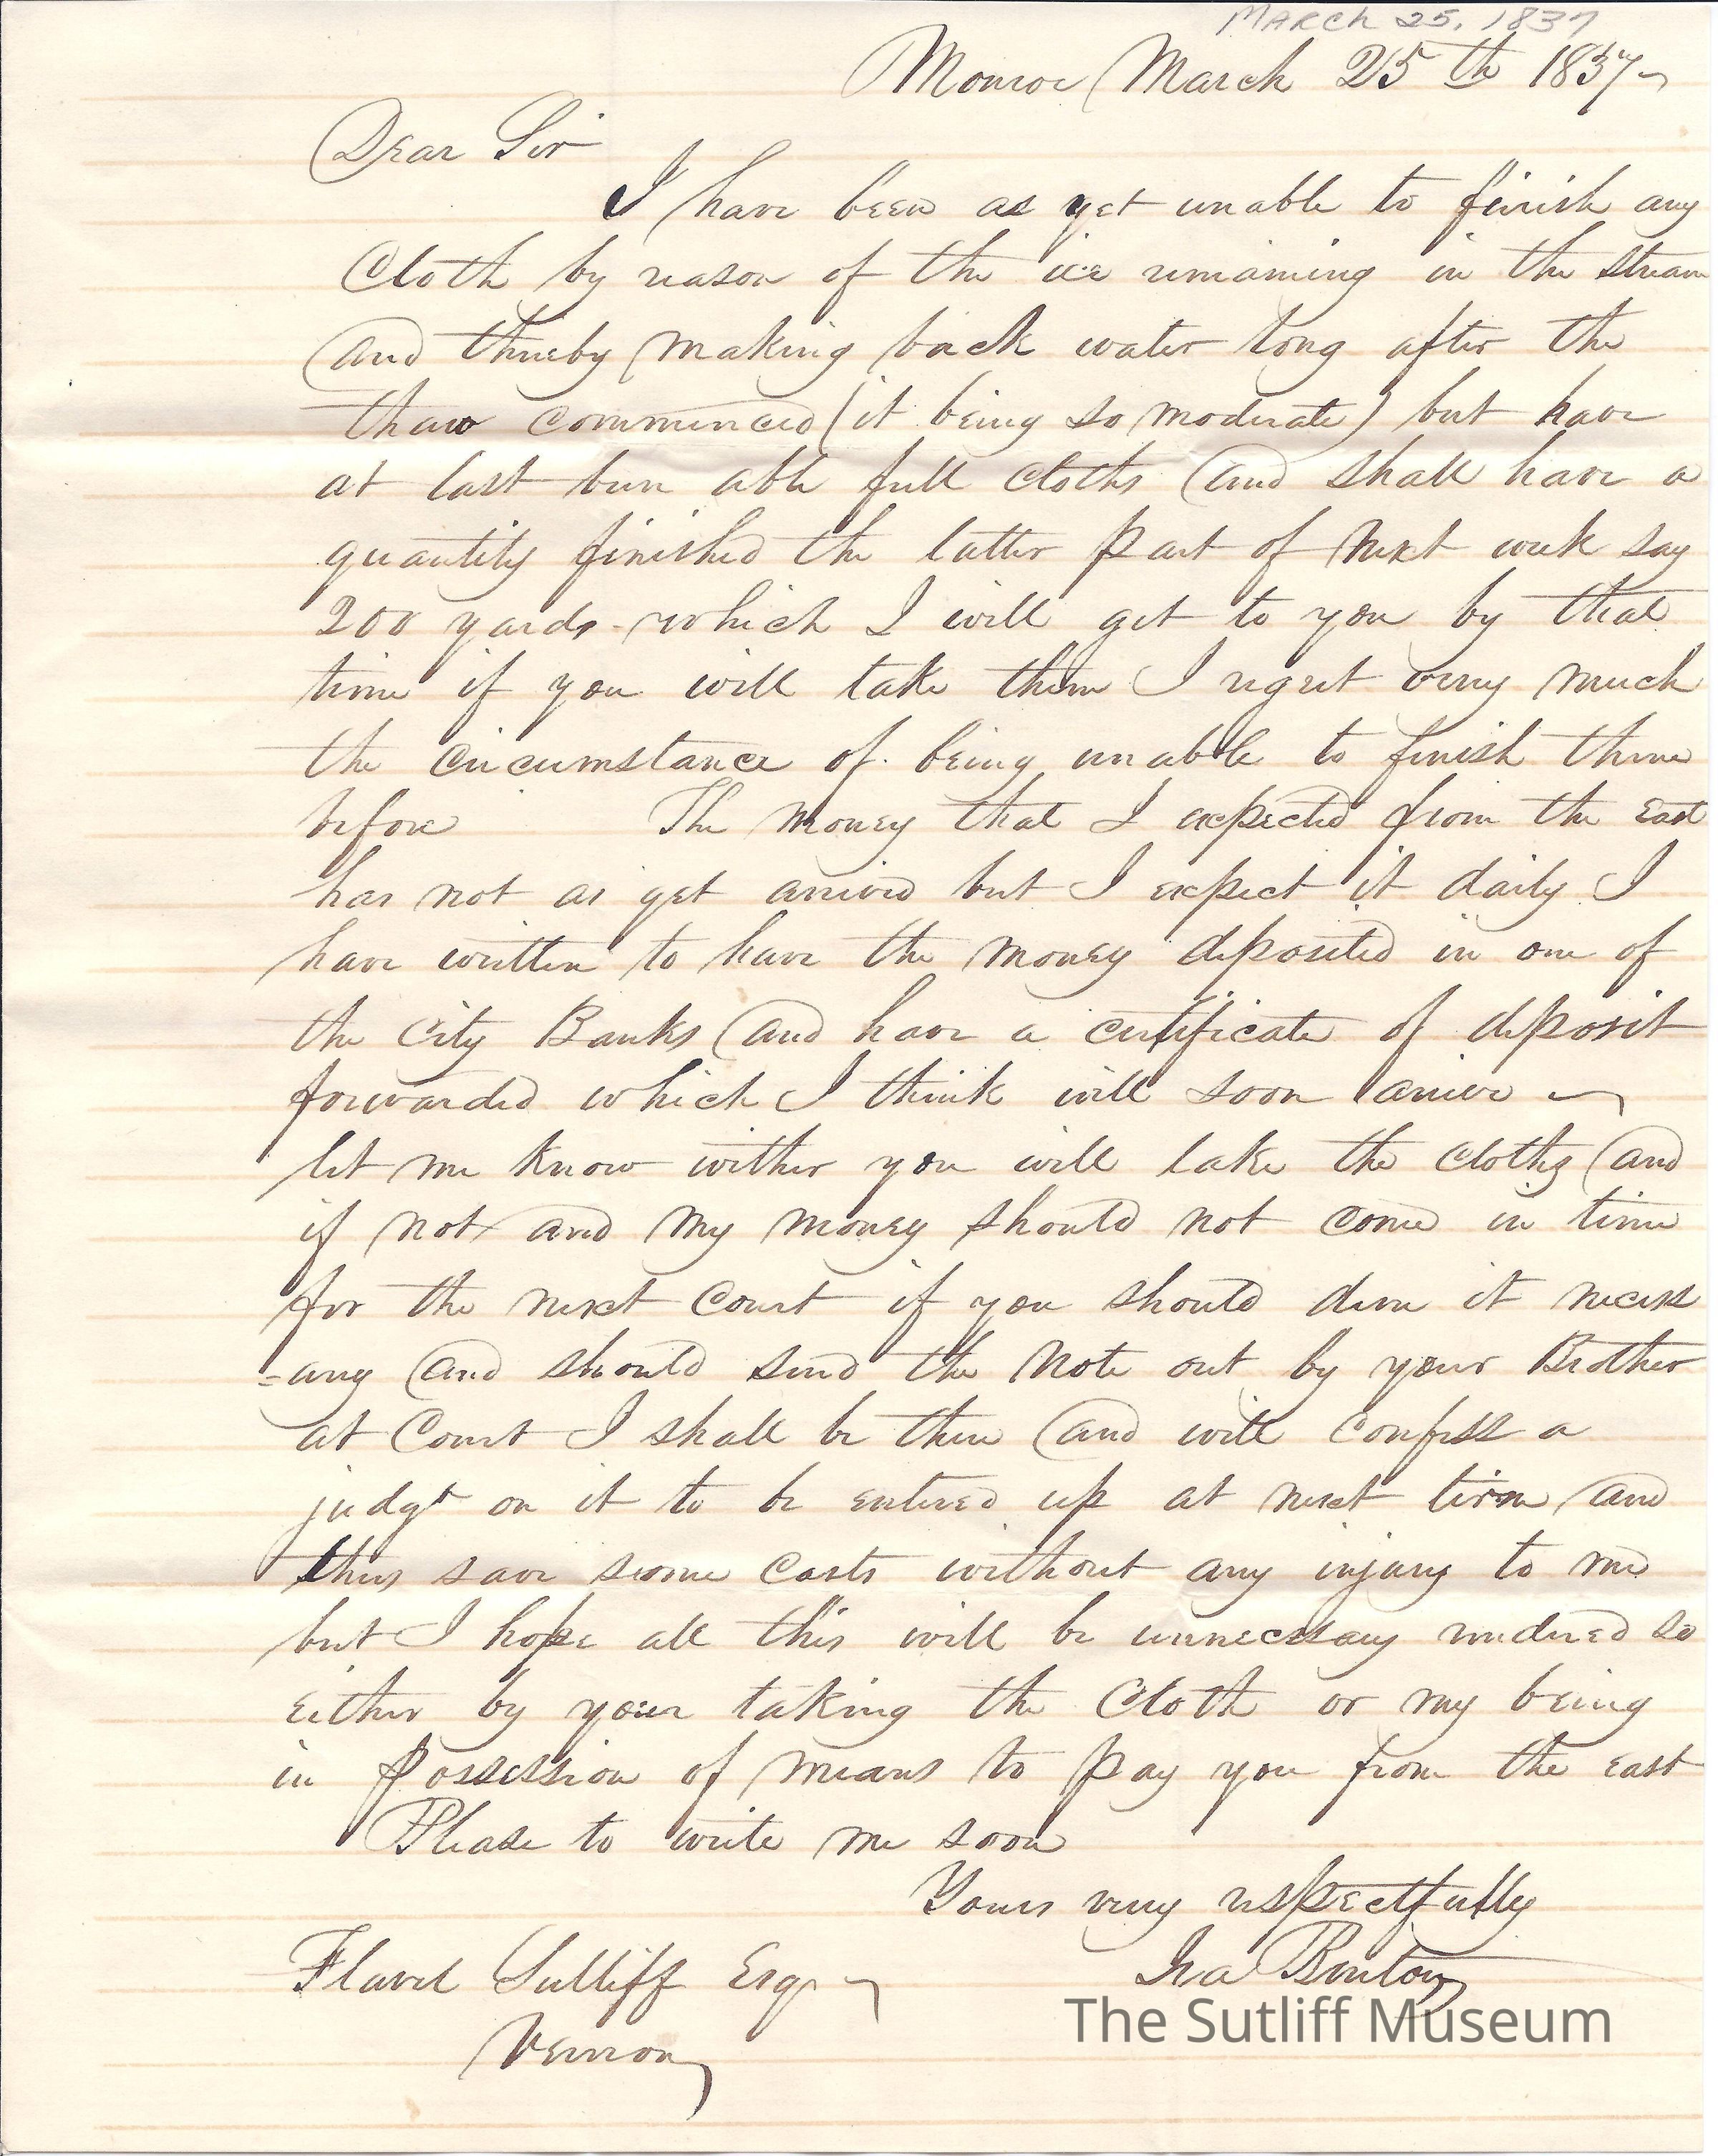 MARCH 25, 1837
Monroe March 25th 1837
Dear Sir
I have been as yet unable to finish any
Cloth by reason of the ice remaining in the stream
and thereby making back water long after the
thaw commenced (it being so moderate) but have
at last been able full cloths and shall have a
quantity finished the latter part of next week say
200 yards - which I will get to you by that
time if you will take them I regret very much
the circumstance of being unable to finish them
before The money that I expected from the East
has not as yet arrived but I expect it daily I
have written to have the money deposited in one of
the City Banks and have a certificate of deposit
forwarded which I think will soon arrive
let me know wither you will take the cloths and
if not and my money should not come in time
for the next Court if you should deem it necess
=ary and should send the Note out by your Brother
at Court I shall be there and will confess a
judgt on it to be entered up at next term and
thus save some costs without any injury to me
but I hope all this will be unnecessary rendered so
either by your taking the Cloth or my being
in possession of means to pay you from the east
Please to write me soon
Yours very respectfully
Ira Benton
Flavel Sutliff Esqr
Vernon
The Sutliff Museum